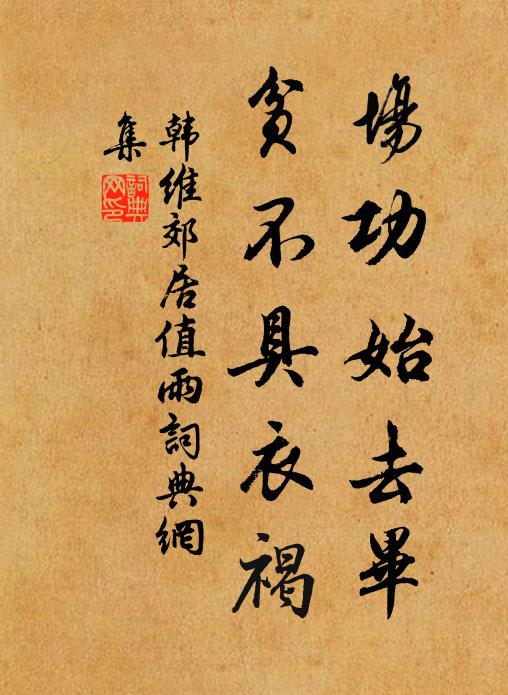 場功始去畢
貧不具衣褐
韩維郊居值雨詞典網
集
詞典
网印